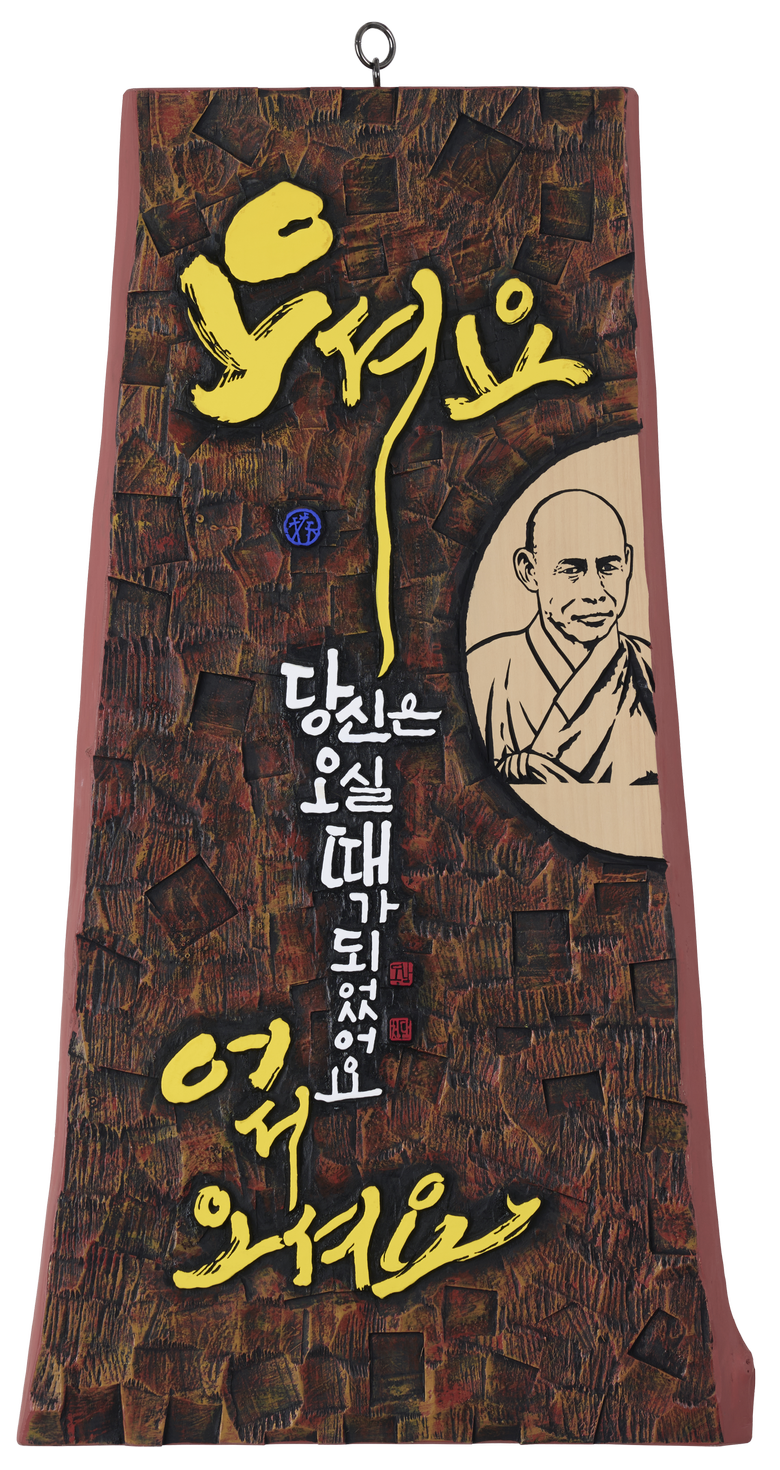 오셔요
당신은 오실 때가 되었어요
어서
오셔요